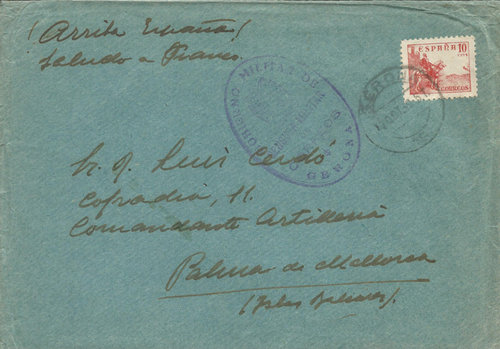 ¡Arriba España!
Saludo a Franco.
ESPAÑA 10
CORREOS
GOBIERNO MILITAR DE
GERONA
GERONA
Luis Cerdó
Cofradia, 11.
Comandante Artillería
Palma de Mallorca
(Islas Baleares).